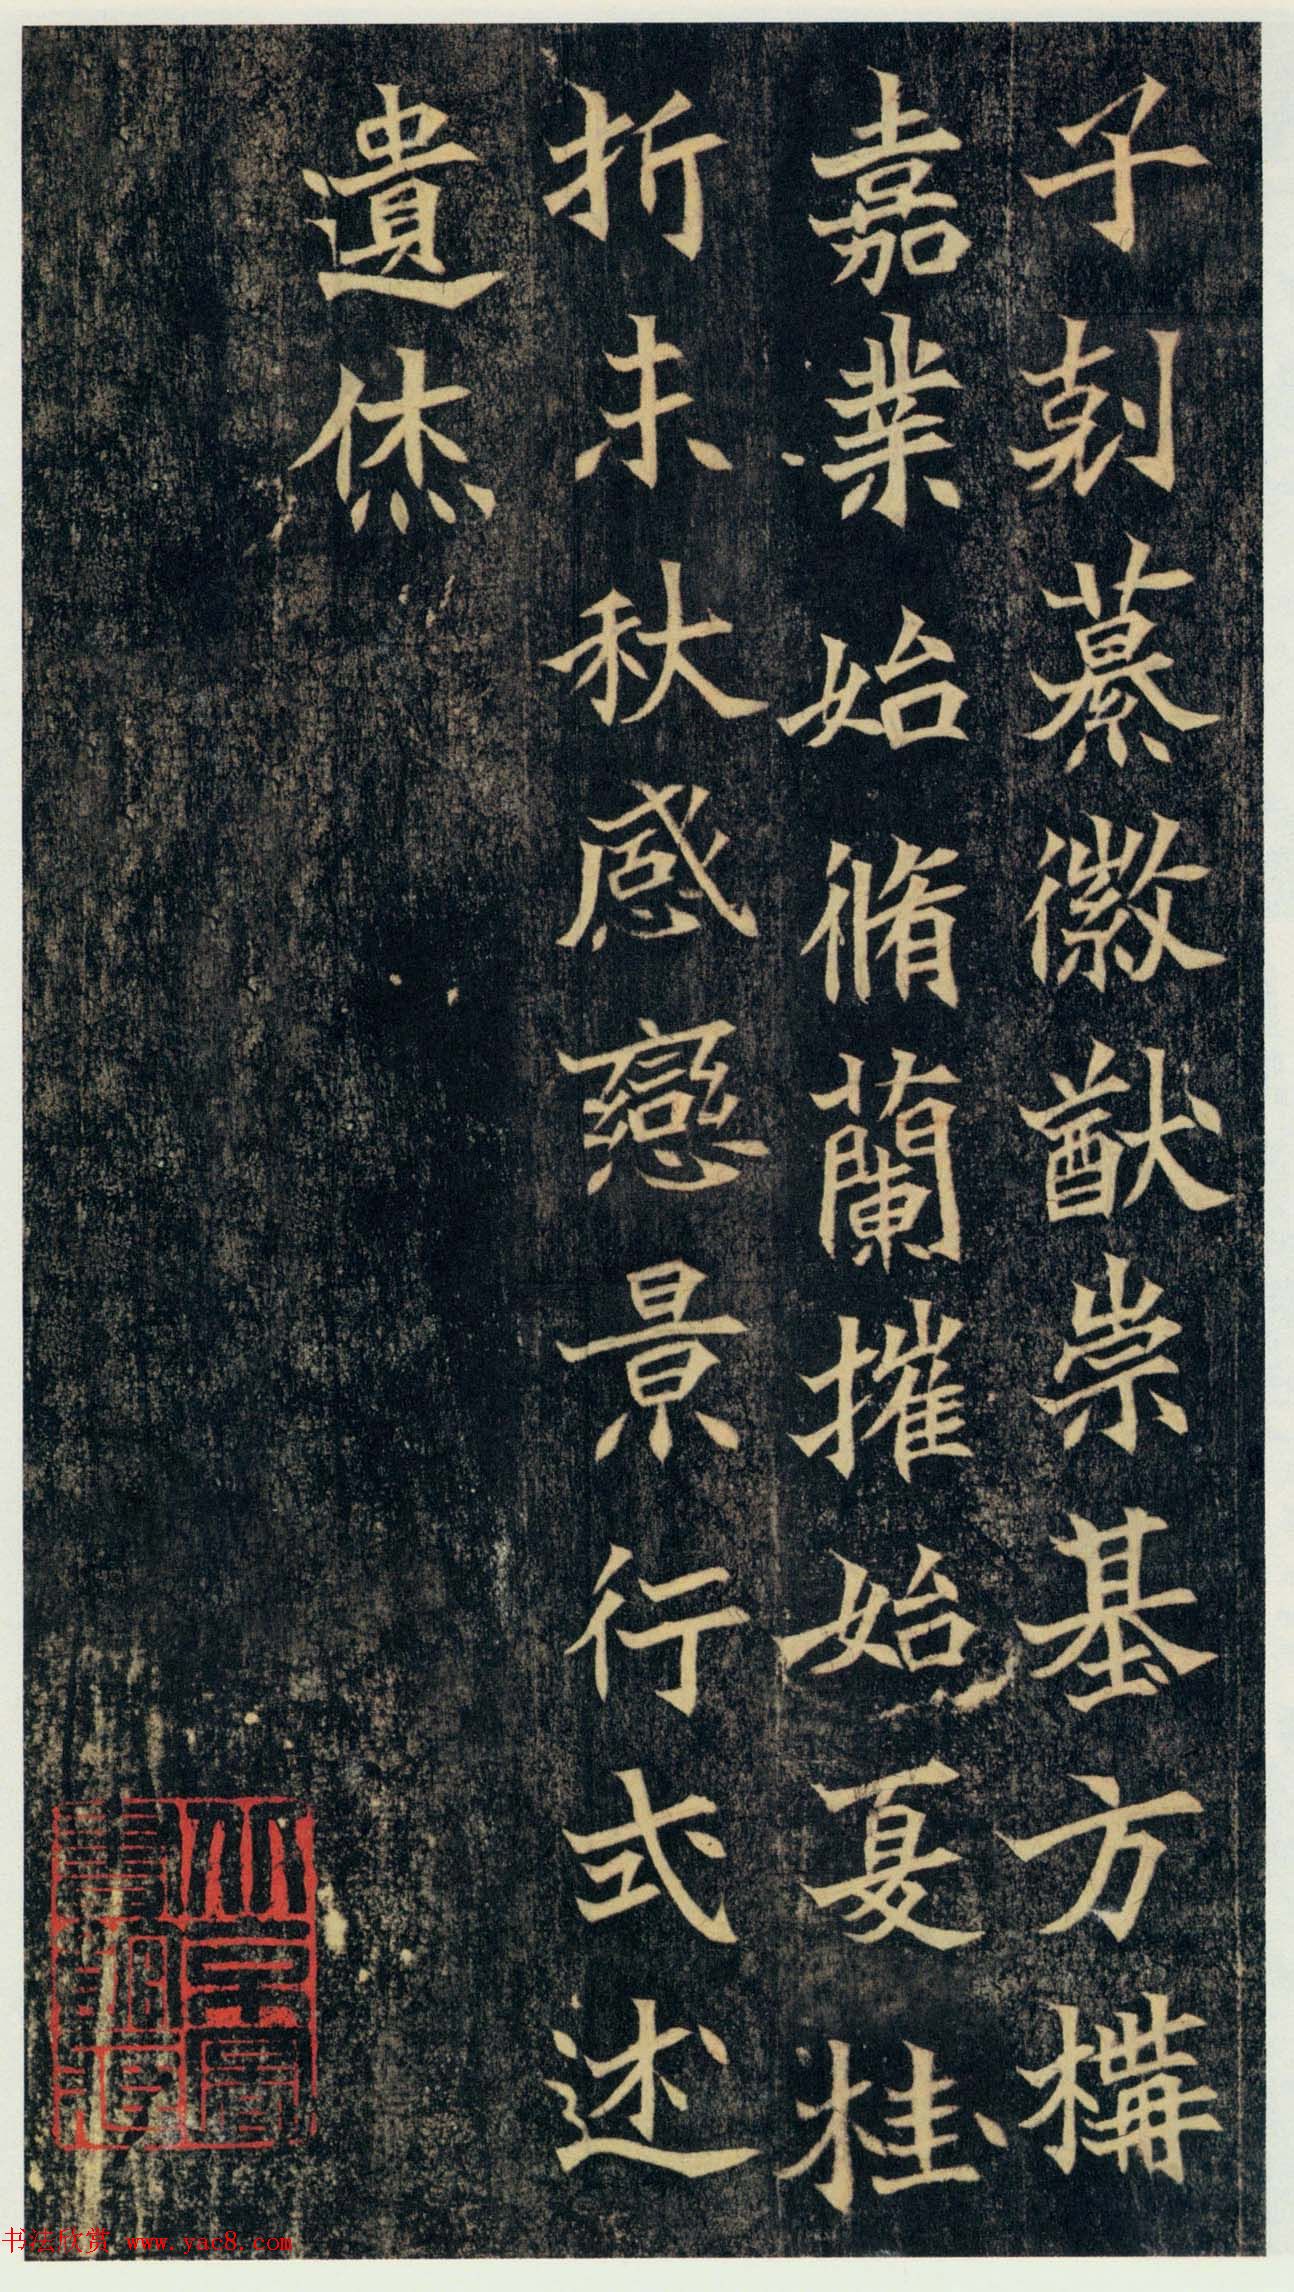 子剋纂徽猷崇基方構
嘉業始脩蘭摧始夏桂
折未秋感戀景行式述
遺烋
书法欣赏 www.yac8.com